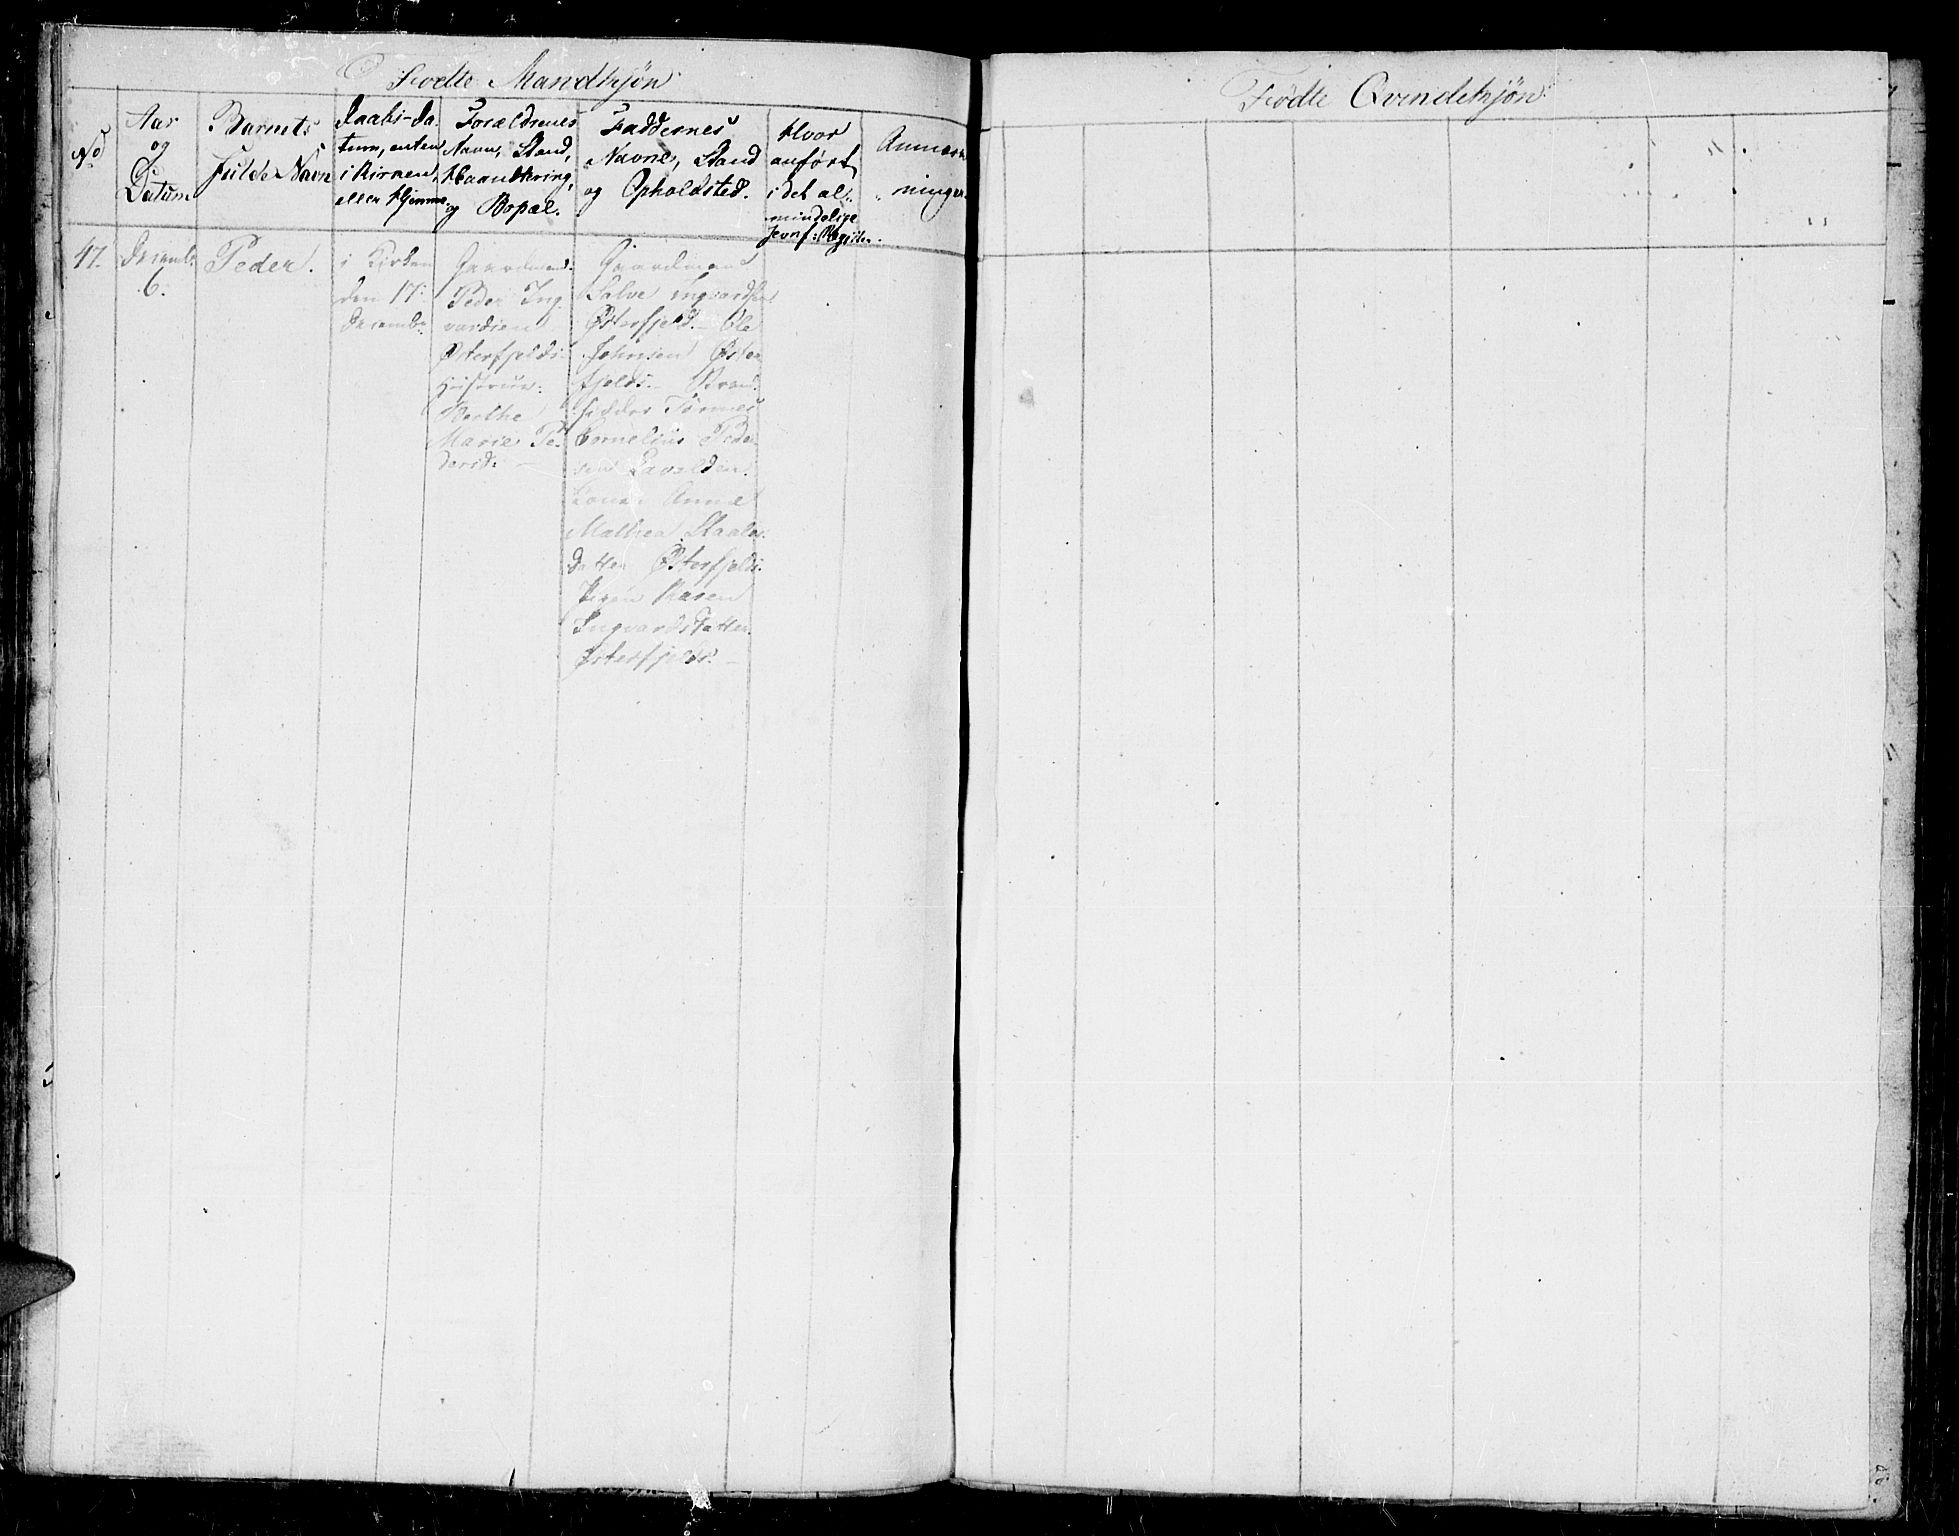 Fødte Mandkjøn
No
Aar
og
Datum
Barnets
fulde Navn
Daabs-Da-
tum, enten
i Kirken,
eller Hjemme
Forældrenes
Navn, Stand,
Haandtering,
og Bopæl.
Faddernes
Navne, Stand
og Opholdsted.
Hvor
anført
i det al-
mindelige
Jevnf: Register.
Anmærk
ninger.
17.
Decembr
6.
Peder.
i Kirken
den 17.
Decembr
Gaardmand
Peder Ing
vardsen
Østerfjelds
Hustrue:
Berthe
Marie Pe-
dersd.
Gaardmand
Salve Ingvardsen
Østerfjeld. - Ole
Johnsen Øster
fjelds. - Strand
sidder Tønnes
Cornelius Peder
sen
Kone Anne
Mathea Staale
datter Østerfjelds.
Pigen Maren
Ingvardsdatter
Østerfjelds. -
Fødte Qvindekjøn